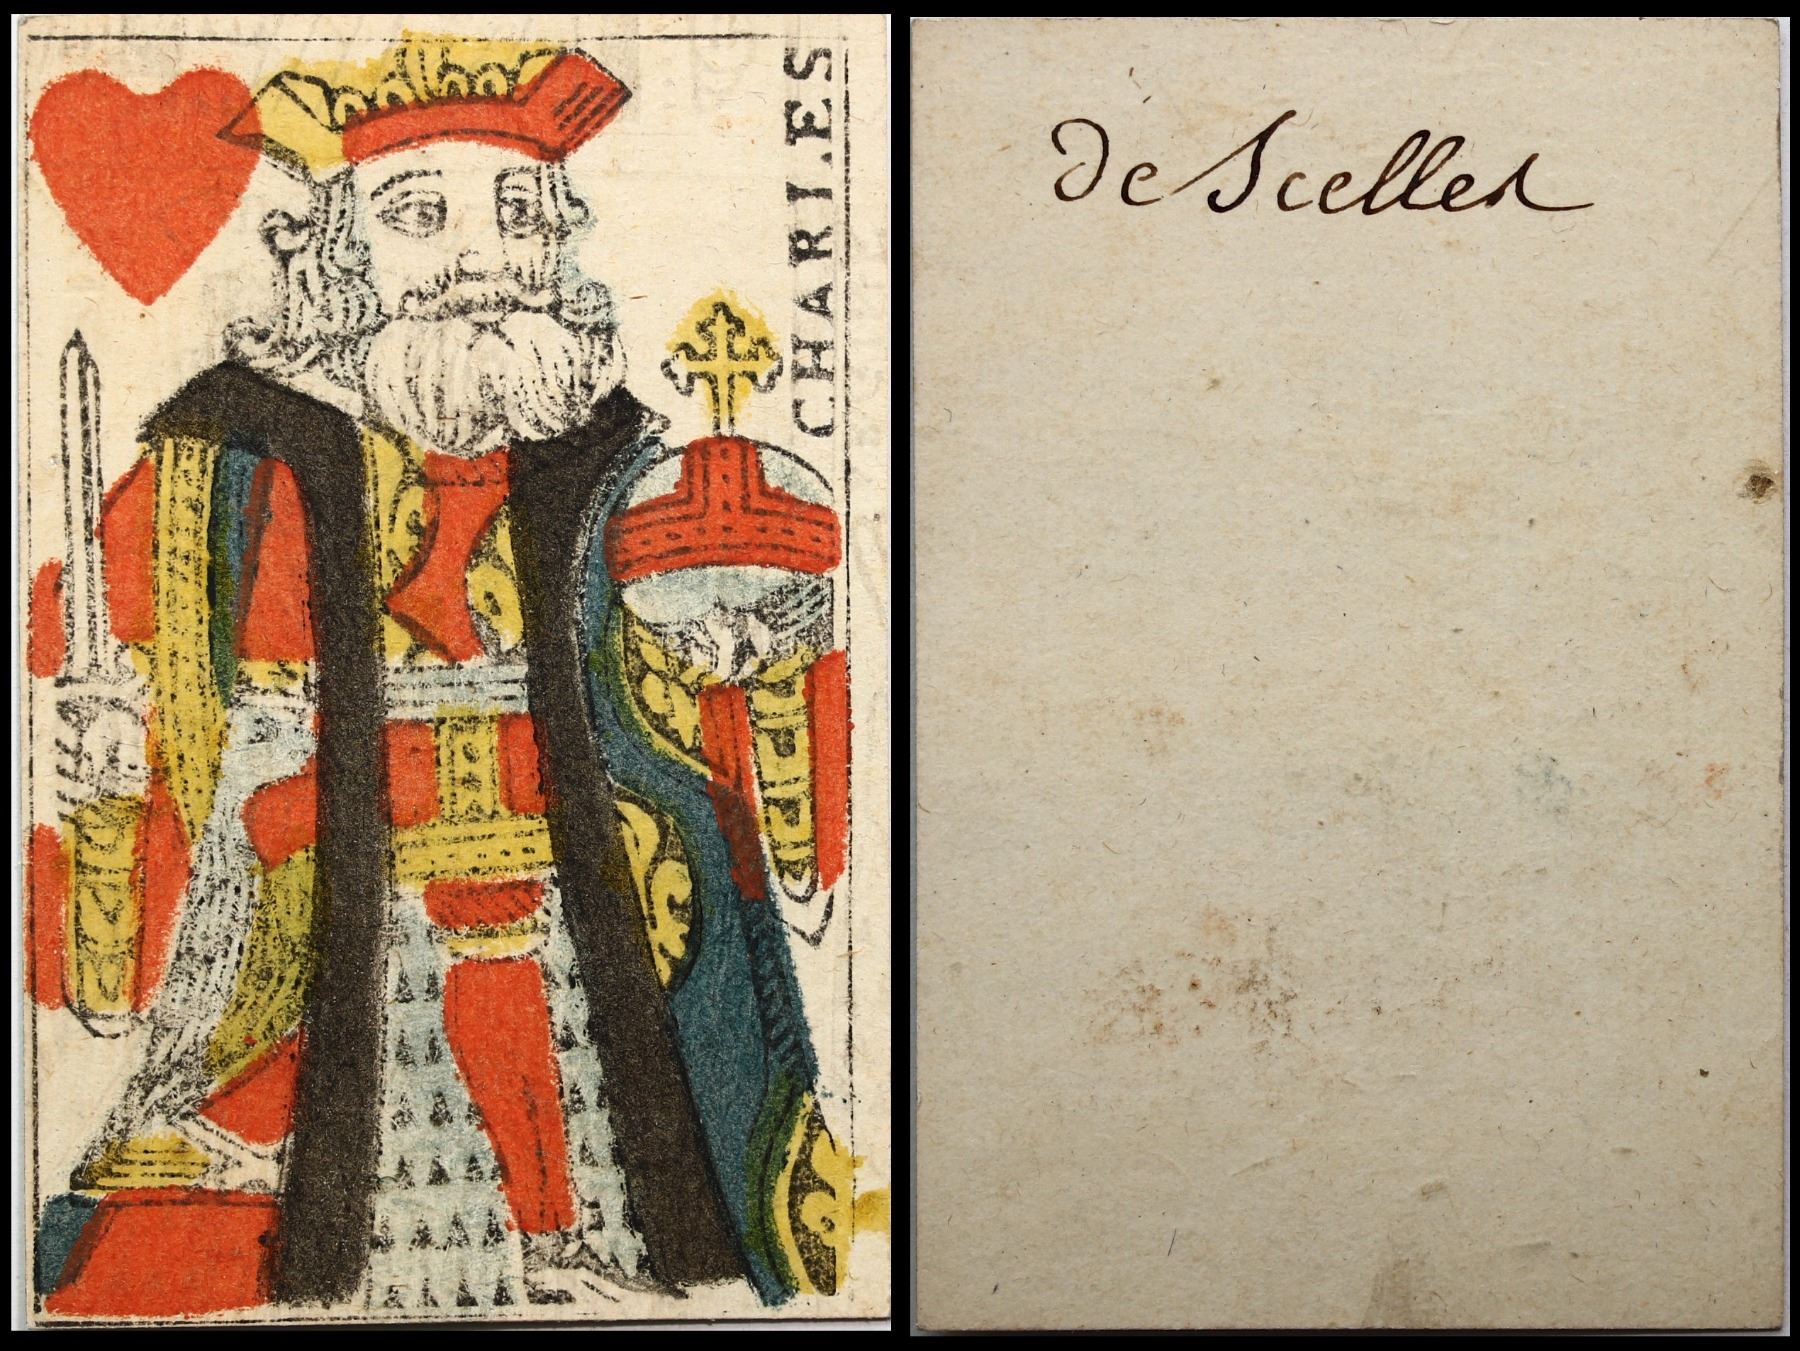 CHARLES
de Scelles